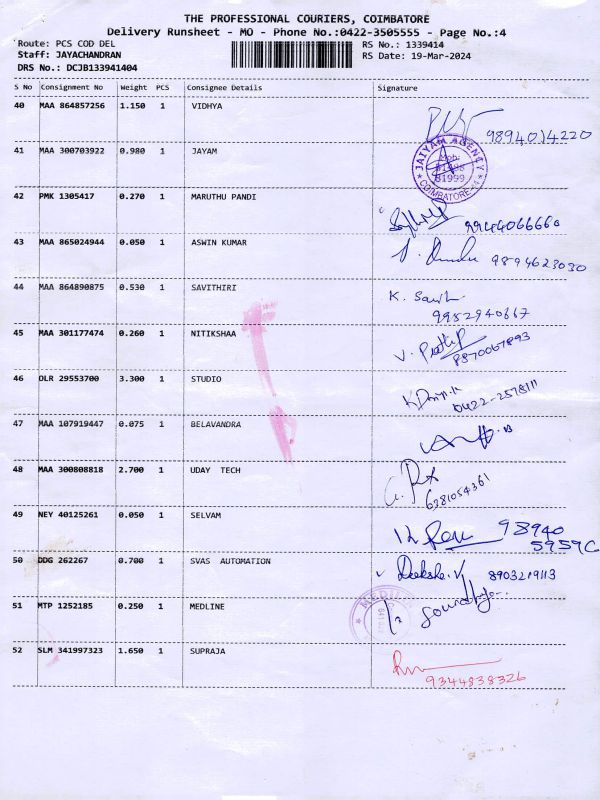 THE PROFESSIONAL COURIERS, COIMBATORE
Delivery Runsheet - MO - Phone No.:0422-3505555 - Page No.:4
Route: PCS COD DEL
RS No.: 1339414
Staff: JAYACHANDRAN
RS Date: 19-Mar-2024
DRS No.: DCJB133941404
S No Consignment No Weight PCS Consignee Details Signature
40 MAA 864857256 1.150 1 VIDHYA
9894014220
41 MAA 300703922 0.980 1 JAYAM
JAIYAM AGENCY
Mob:
81999
COIMBATORE
42 PMK 1305417 0.270 1 MARUTHU PANDI
9944066660
43 MAA 865024944 0.050 1 ASWIN KUMAR
9894623030
44 MAA 864890875 0.530 1 SAVITHIRI
K.
9952940667
45 MAA 301177474 0.260 1 NITIKSHAA
V.
8870067893
46 DLR 29553700 3.300 1 STUDIO
0422-2578111
47 MAA 107919447 0.075 1 BELAVANDRA
48 MAA 300808818 2.700 1 UDAY TECH
6381054361
49 NEY 40125261 0.050 1 SELVAM
98940
50 DDG 262267 0.700 1 SVAS AUTOMATION
8903219113
51 MTP 1252185 0.250 1 MEDLINE
52 SLM 341997323 1.650 1 SUPRAJA
9344838326